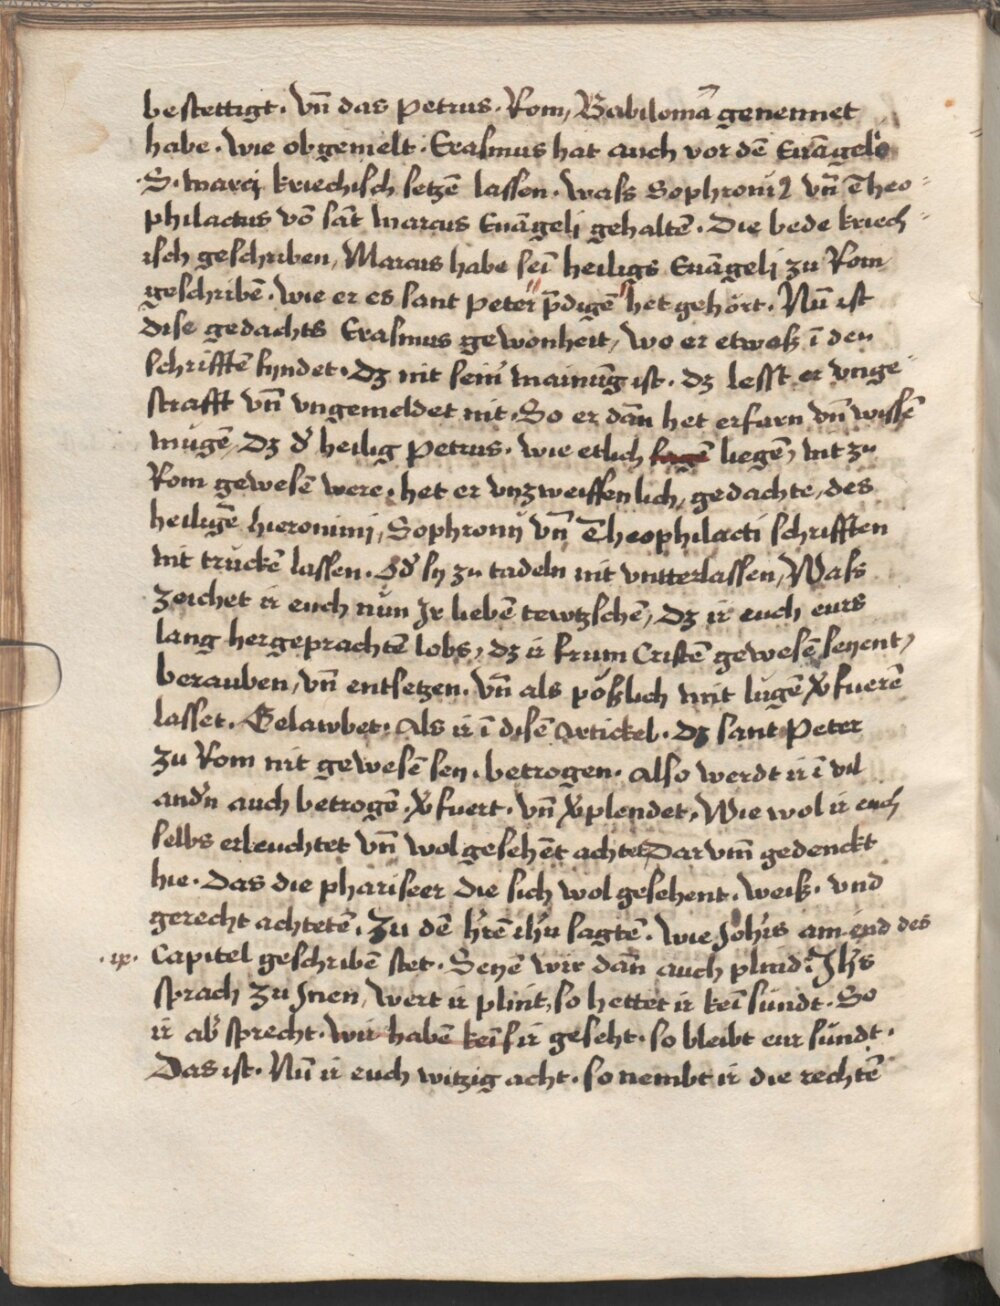 bestettigt. Vn̄ das Petrus. Rom, Babilomā genennet
habe. Wie obgemelt. Erasmus hat auch vor dē Euāgelio
S. marcj kriechisch setzē lassen. wass Sophroniꝰ vn̄ Theo⸗
philactus vō sāt marcus Euāgelj gehaltē. Die bede kriech⸗
isch geschriben, Marcus habe seī heiligs Euāgelj zu Rom
geschribē. wie er es sant peter p̄digē het gehört. Nū ist
dise gedachts Erasmus gewonheit, wo er etwaß ī den
schrifftē fyndet. dz nit seinr mainūg ist. dz lesst er vnge⸗
strafft vn̄ vngemeldet nit. So er dān het erfarn vn̄ wissē
mügē, dz dˀ heilig petrus. wie etlich sagē liegē, nit zu
Rom gewesē were, het er vnzweiffenlich, gedachte, des
heiligē hieronimj, Sophronij vn̄ Theophilacti schrifften
nit truckē lassen. Odˀ sy zu tadeln nit vntterlassen, Wass
zeichet ir euch nün Jr liebē tewtzschē, dz ir euch eurs
lang hergeprachtē lobs, dz ir frum Cristē gewesē seyent,
berauben, vn̄ entsetzen. vn̄ als pößlich mit lügē v̾fuerē
lasset. Gelawbet. Als ir ī disē Artickel. dz sant Peter
zu Rom nit gewesē sey. betrogen. Also werdt ir ī vil
andˀn auch betrogē, v̾fuert. vn̄ v̾plendet, Wie wol ir euch
selbs erleuchtet vn̄ wol gesehēt achtet, Dar vm̄ gedenckt
hie. Das die phariseer die sich wol gesehent. weiß. vnd
gerecht achtetē. Zu dē hˀrē ihˀu sagtē. wie Johˀis am end des
.ix. Capitel geschribē stet. Seyē wir dān auch plind: Jhˀs
sprach zu Jnen, wert ir plint, so hettet ir keī sündt. So
ir abˀ sprecht. wir habē keīs ir geseht. so bleibt eur sündt.
Das ist. Nū ir euch witzig acht. so nembt ir die rechtē